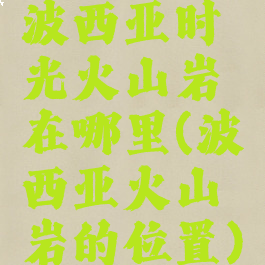 波西亚时
光火山岩
在哪里(波
西亚火山
岩的位置)